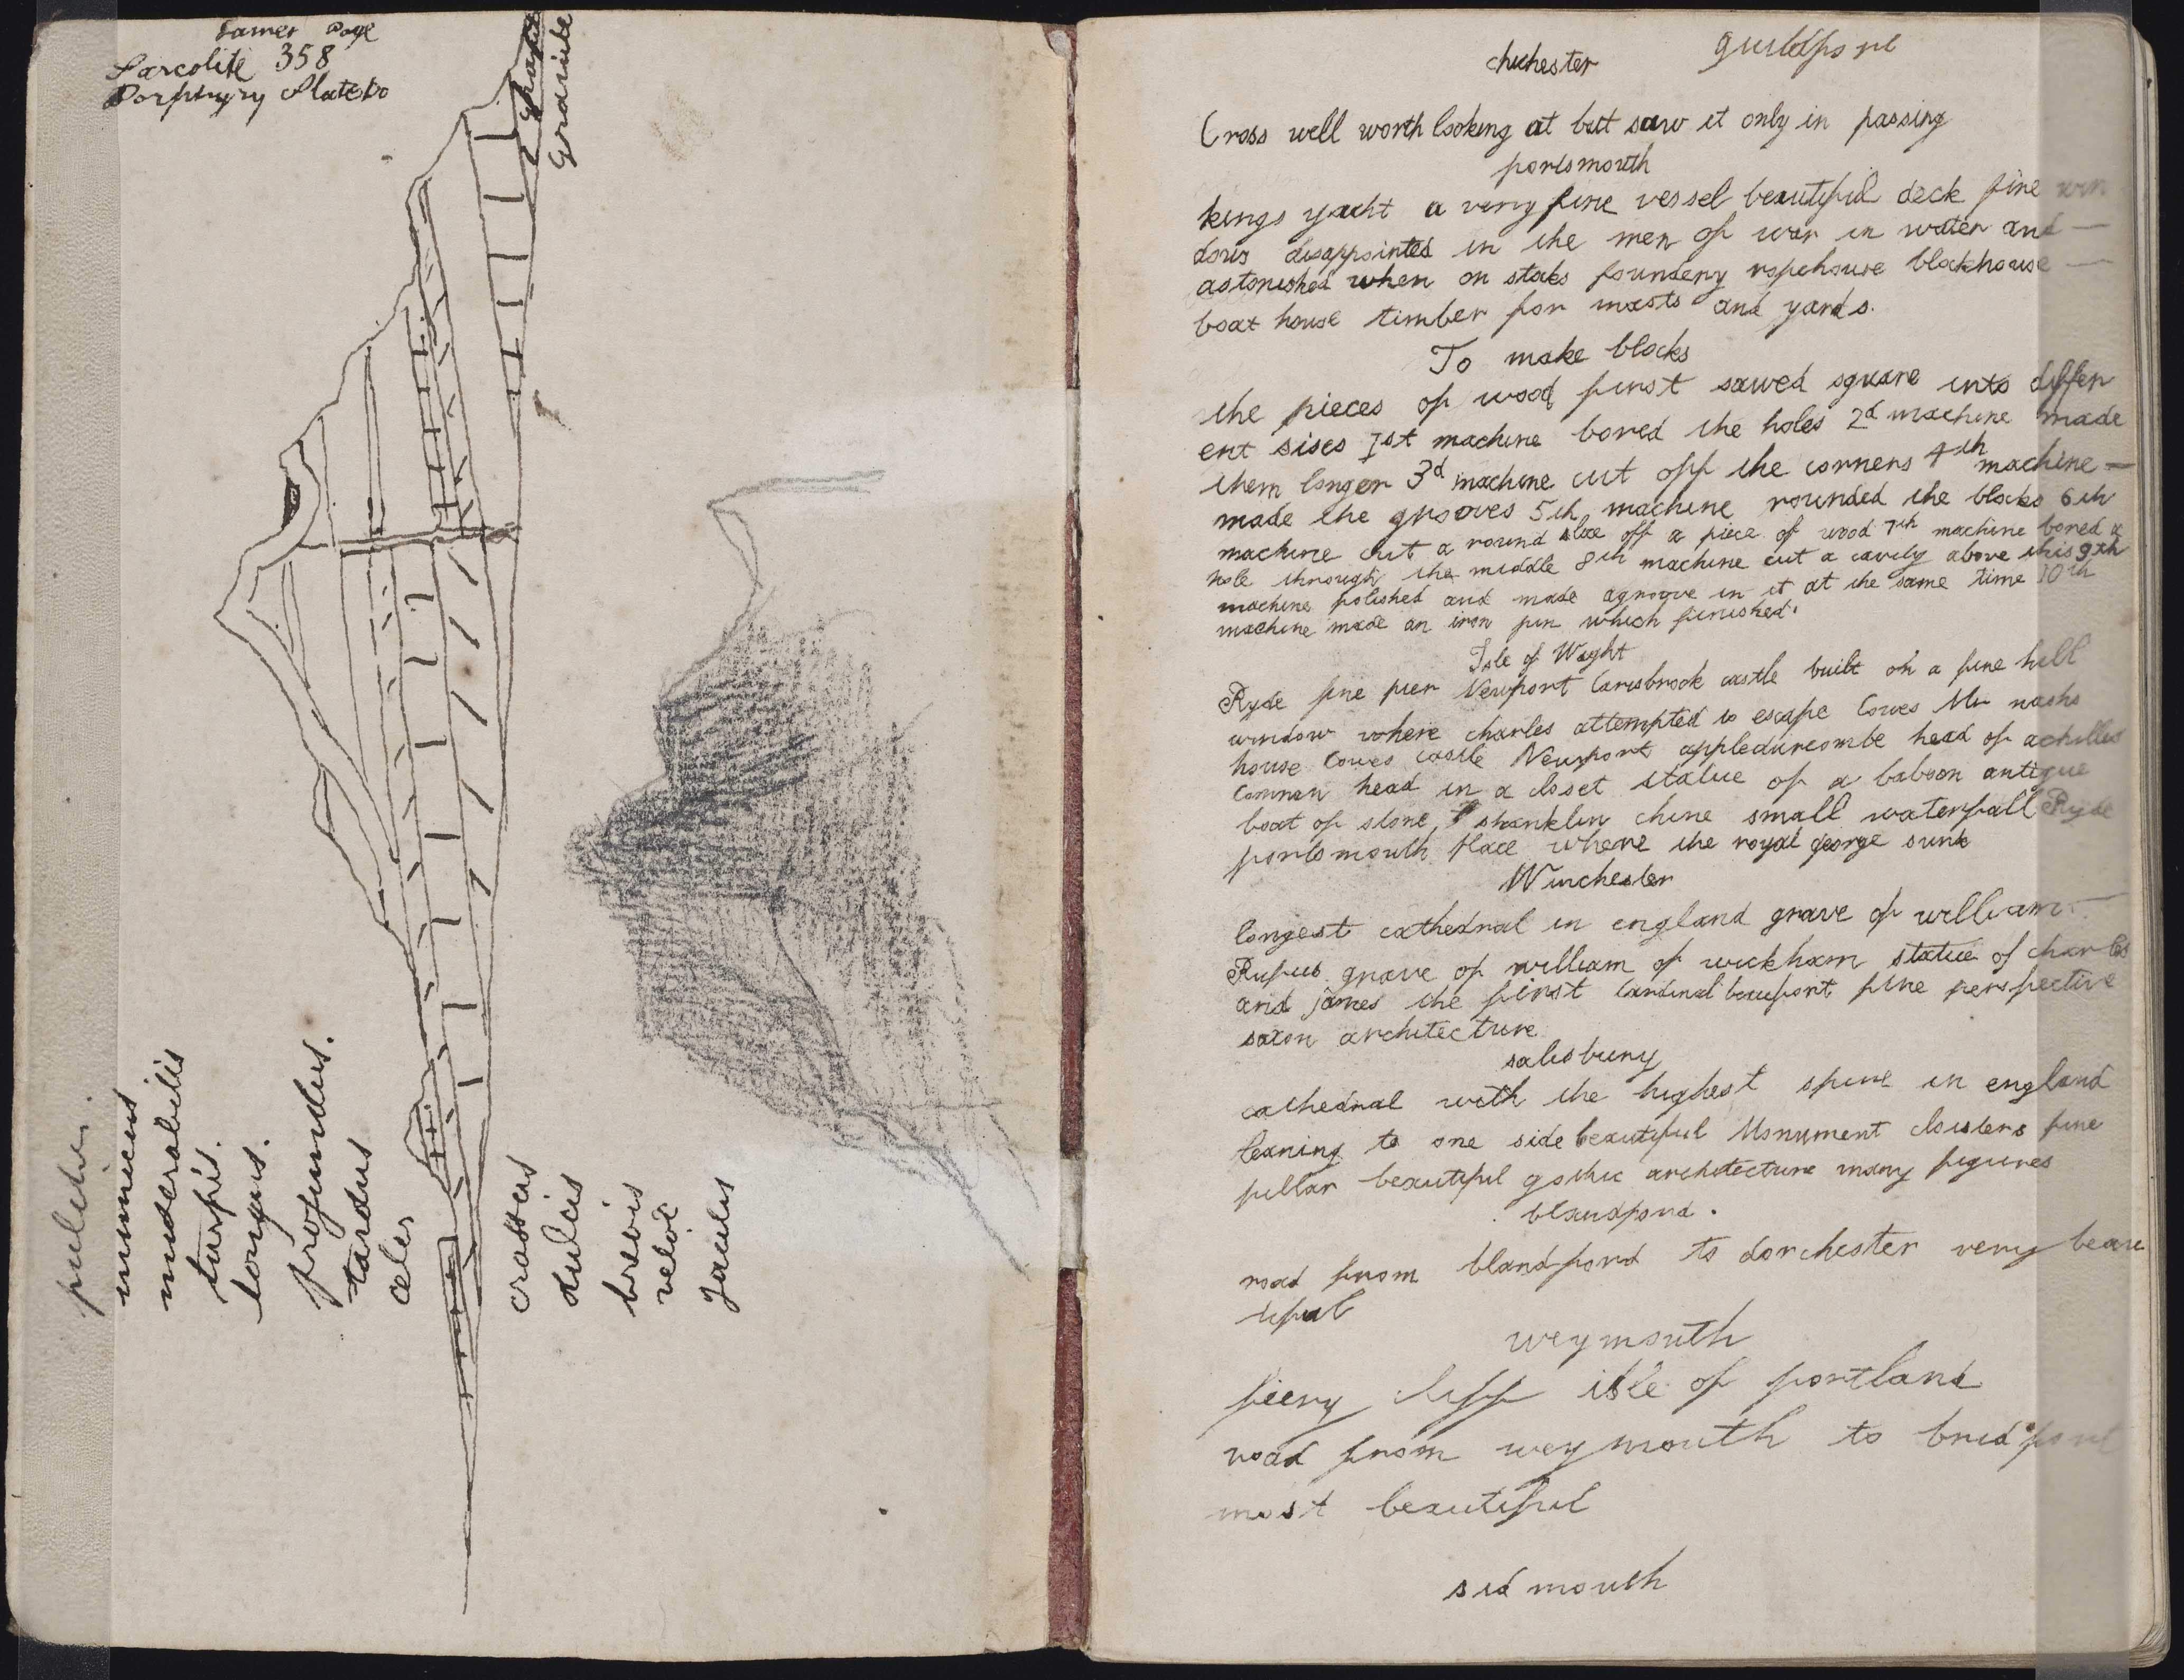 James Page
Sarcolite 358
Porphyry Slate Do
Granite
pulcher.
inimicus
miserabilis
turpis.
longus.
profundus.
tardus
celer
crassus
dulcis
brevis
velox
Jaculus
chichester guildford
Cross well worth looking at but saw it only in passing
portsmouth
kings yacht a very fine vessel beautiful deck fine win
dows disappointed in the men of war in water and —
astonished when on stoks foundery ropehouse blockhouse —
boat house timber for masts and yards.
To make blocks
the pieces of wood first sawed square into differ
ent sises 1st machine bored the holes 2d machine made
them longer 3d machine cut off the corners 4th machine —
made the grooves 5th machine rounded the blocks 6th
machine cut a round slice off a piece of wood 7th machine bored a
hole through the middle 8th machine cut a cavity above this 9th
machine polished and made agroove in it at the same time 10th
machine made an iron pin which finished.
Isle of Wight
Ryde fine pier Newport Carisbrook castle built on a fine hill
window where charles attempted to escape Cowes Mr nashs
house Cowes castle Newport appledurcombe head of achilles
Common head in a closet statue of a baboon antique
boat of stone, shanklin chine small waterfall Ryde
portsmouth place where the royal george sunk
Winchester
longest cathedral in england grave of william —
Rufus grave of william of wickham statue of charles
and james the first Cardinal beaufort fine perspective
saxon architecture
salisbury
cathedral with the highest spire in england
leaning to one side beautiful Monument cloisters fine
pillar beautiful gothic architecture many figures
blandford.
road from blandford to dorchester very beau
tiful
weymouth
fiery cliff isle of portland
road from weymouth to bridport
most beautiful
sidmouth